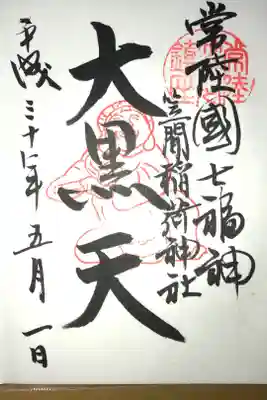 常陸國七福神
笠間稲荷神社
大黒天
平成三十年五月一日